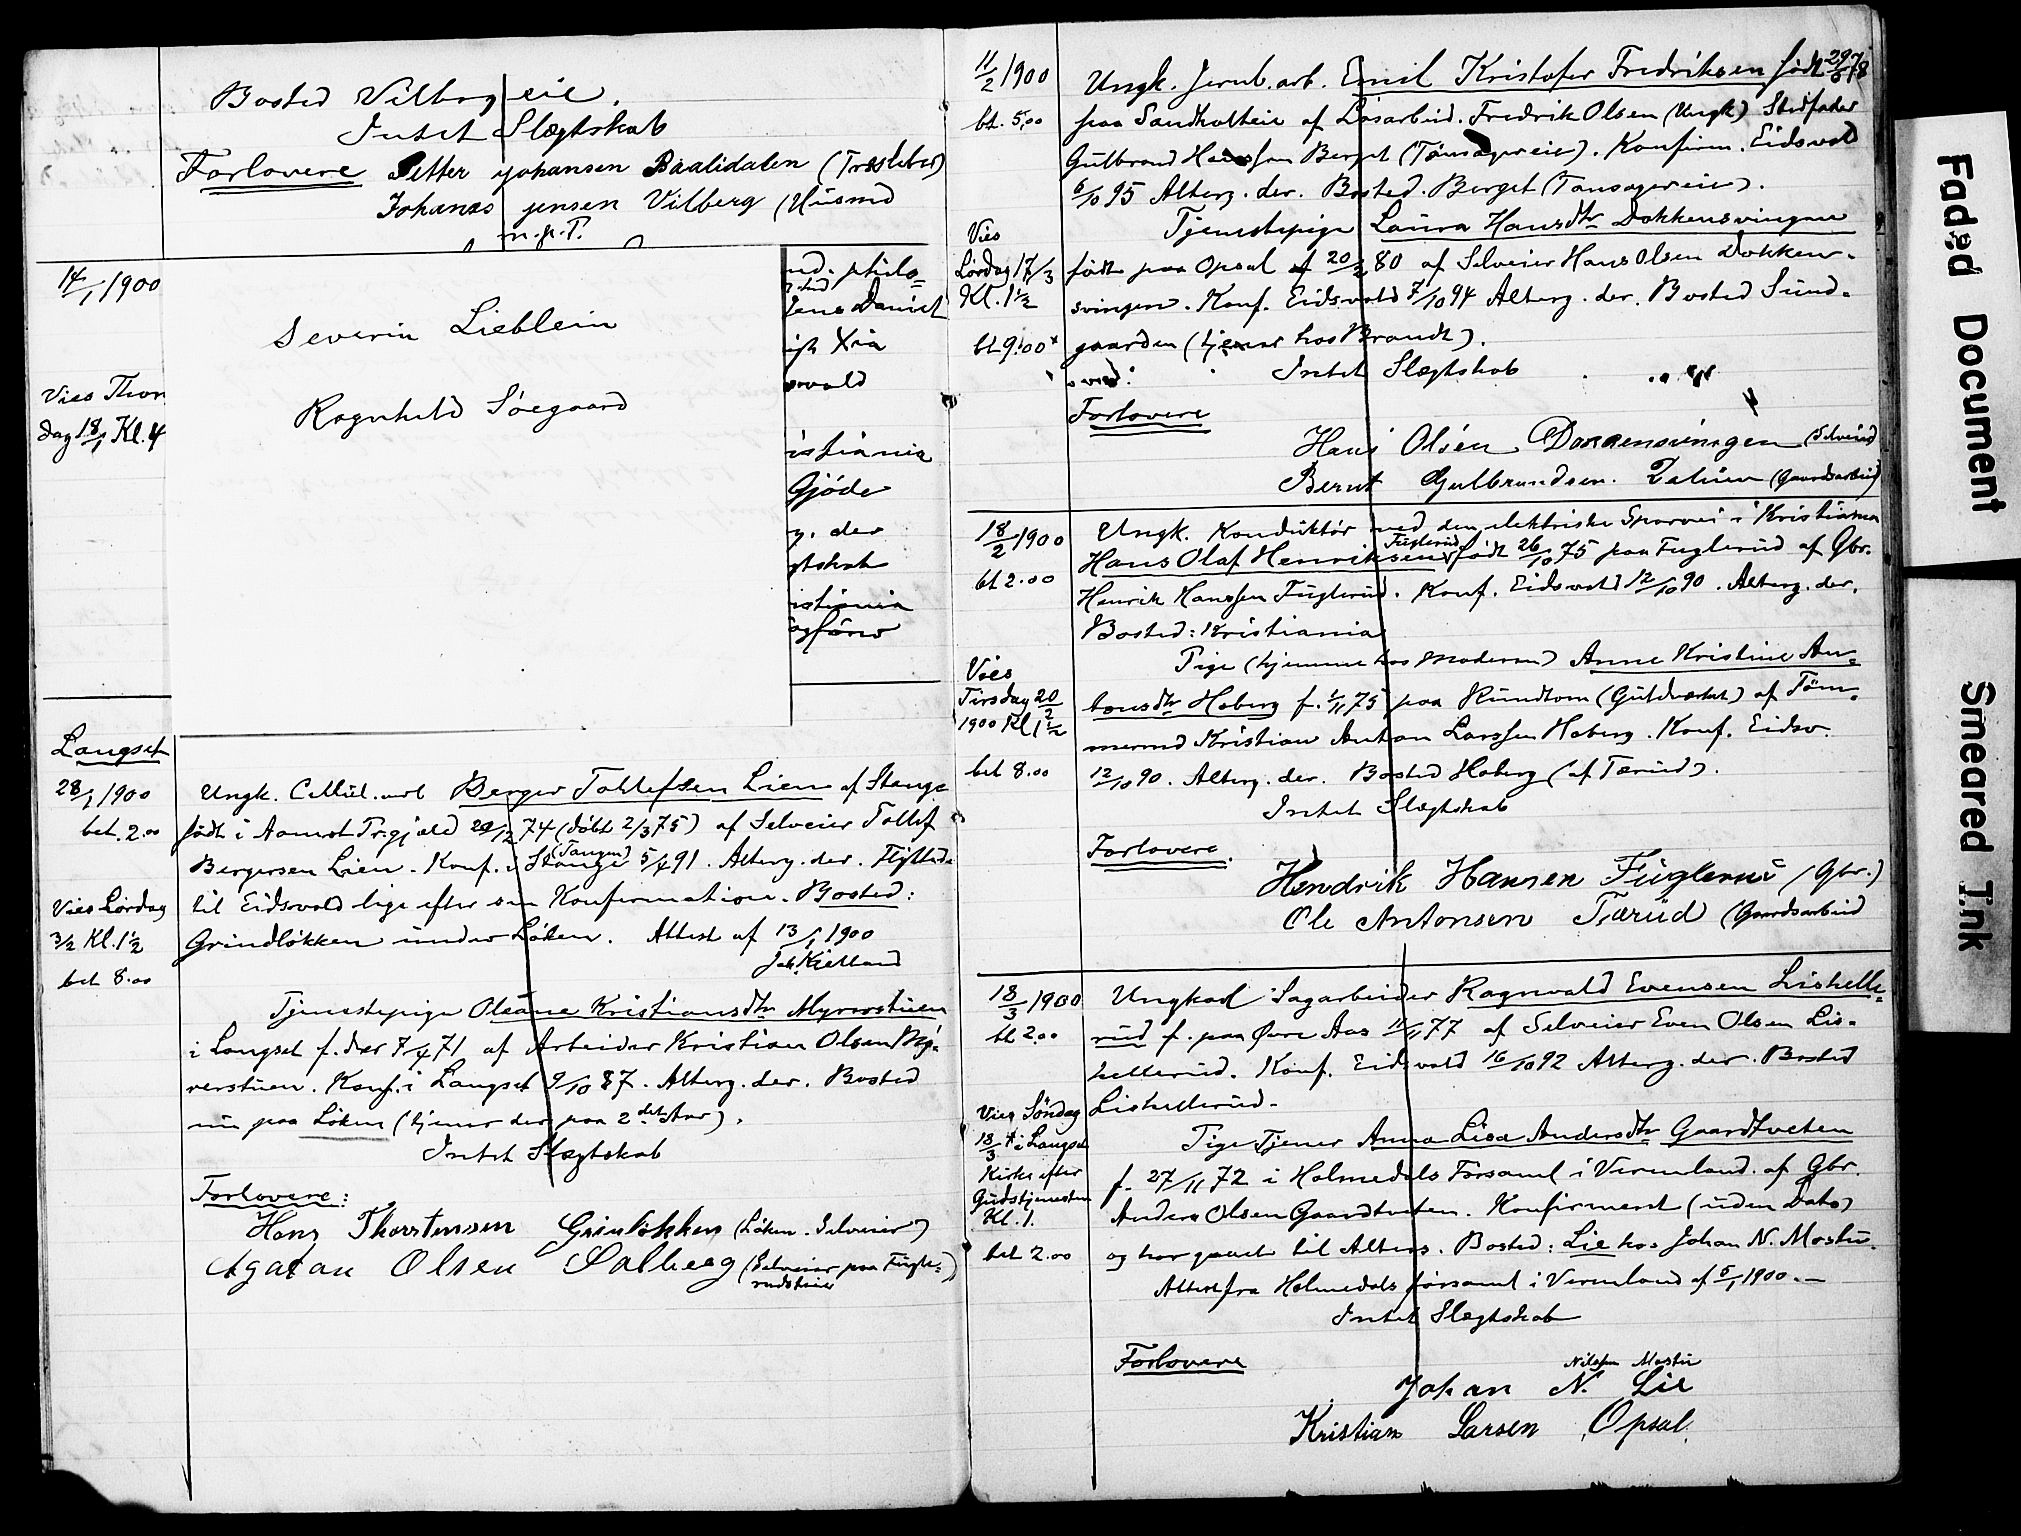 Bosted Vilberg eie.
Intet Slægtskab
Forlovere Petter Johansen Baalidalen (Træsleber)
Johanes Jensen Vilberg (Husmd
m.p.P.
14/1 1900
nd. philo=
Jens Daniel
Xia
svold
Severin Lieblein
Vies Thors
dag 18/1 Kl. 4
Ragnhild Söegaard
istiania
Gjöde
g. der
gtskab
istiania
Langset
28/1 1900
bet. 2.00
Vies Lördag
3/2 Kl. 1½
bet 8.00
Ungk. Cellul. arb Berger Tollefsen Lien af Stange
född i Aamot Pr.gjæld 29/12 74 (döbt 2/3 75) af Selveier Tollef
Bergersen Lien. Konf. i Stange (Tangen) 5/4 91. Alterg. der. Flyttede
til Eidsvold lige efter sin Konfirmation. Bosted:
Grindlökken under Löken. Attest af 13/1 1900
Jak. Kielland
Tjenestepige Oleane Kristiansdtr Myrerstuen
i Langset f. der 7/4 71 af Arbeider Kristian Olsen My-
rerstuen. Konf. i Langset 9/10 87. Alterg. der. Bosted
nu paa Löken (tjener der paa 2det Aar).
Intet Slægtskab
Forlovere:
Hans Thorstensen Grinlökken (Löken. Selveier)
Agaton Olsen Solberg (Selveier paa Fugle=
rudseie)
11/2 1900
bt. 5,00
Vies
Lördag 17/3
Kl. 1½
bt 9.00
Ungk. Jernb. arb. Emil Kristofer Fredriksen född 29/5 78
297
paa Sandholteie af Lösarbeid. Fredrik Olsen (Ungk) Stedfader
Gulbrand Hanssen Berget (Tönsagereie). Konfirm. Eidsvold
6/10 95 Alterg. der. Bosted. Berget (Tönsagereie).
Tjenestepige Laura Hansdtr Dokkensvingen
född paa Opsal 20/2 80 af Selveier Hans Olsen Dokken-
svingen. Konf. Eidsvold 7/10 94 Alterg. der. Bosted Sund-
gaarden (tjener hos Brandt).
Intet Slægtskab
Forlovere
Hans Olsen Dokkensvingen (Selveier)
Bernt Gulbrandsen (Gaardsarbeid)
18/2 1900
bt 2.00
Vies
Tirsdag 20/2
1900 Kl 1½
bet 8.00
Ungk. Konduktör ved den elektriske Sporvei i Kristiania
Hans Olaf Henriksen Fuglerud född 26/10 75 paa Fuglerud af Gbr.
Henrik Hanssen Fuglerud. Konf. Eidsvold 12/10 90. Alterg. der.
Bosted: Kristiania
Pige (hjemme hos Moderen) Anne Kristine An=
tonsdtr Hoberg f. 1/11 75 paa Rundtom (Guldverket) af Töm-
mermd Kristian Anton Larssen Hoberg. Konf. Eidsv.
12/10 90. Alterg. der. Bosted Hoberg (af Tærud).
Intet Slægtskab
Forlovere.
Hendrik Hansen Fuglerud (Gbr.)
Ole Antonsen Tærud (Gaardsarbeid
18/3 1900
bt 2.00
Vies Söndag
18/3 i Langset
Kirke efter
Gudstjenesten
Kl. 1.
bet 2.00
Ungkarl Sagarbeider Ragnvald Evensen Liskelle-
rud f. paa Övre Aas 11/1 77 af Selveier Even Olsen Lis-
kellerud. Konf. Eidsvold 16/10 92 Alterg. der. Bosted
Liskellerud.
Pige Tjener Anna Lisa Andersdtr Gaardtveten
f. 27/11 72 i Holmedals Forsaml i Vermland. af Gbr.
Anders Olsen Gaardtveten. Konfirmeret (uden Dato)
og har gaaet til Alters. Bosted: Lie hos Johan N. Mostu.
Attest fra Holmedals forsaml i Vermland af 5/1 1900.
Intet Slægtskab
Forlovere
Nilssen Mostu
Johan N. Lie
Kristian Larsen Opsal.
Faded Document
Smeared Ink